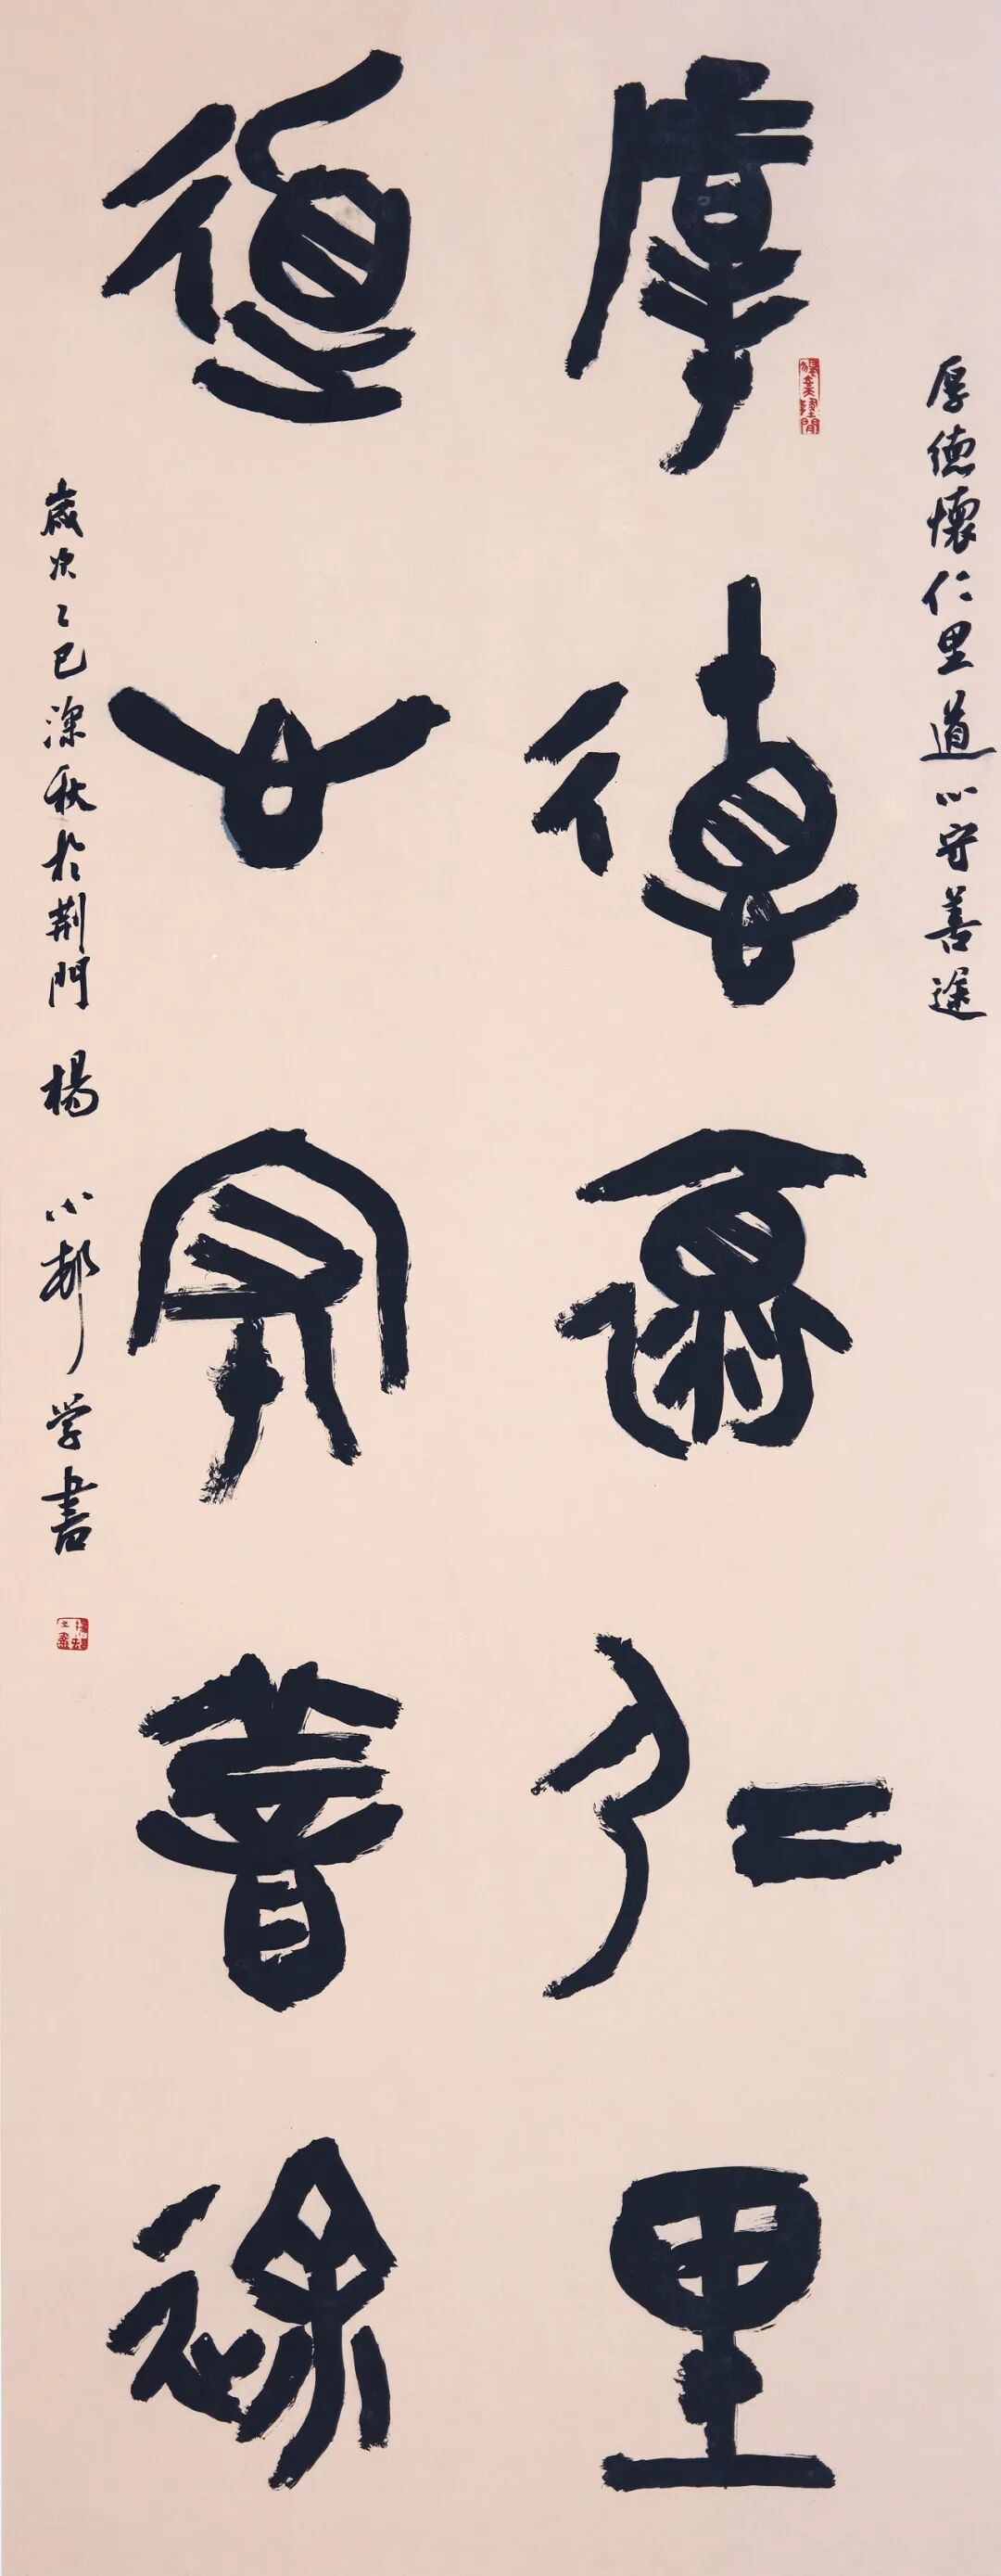 厚德懷仁里道心守善途
厚德懷仁里
道心守善途
歲次乙巳深秋於荆門 楊小 学書